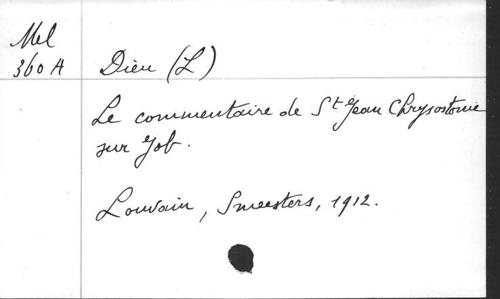 Mel
360 A
Dieu (L)
Le commentaire de St Jean Chrysostome
sur Job.
Louvain, Smeesters, 1912.